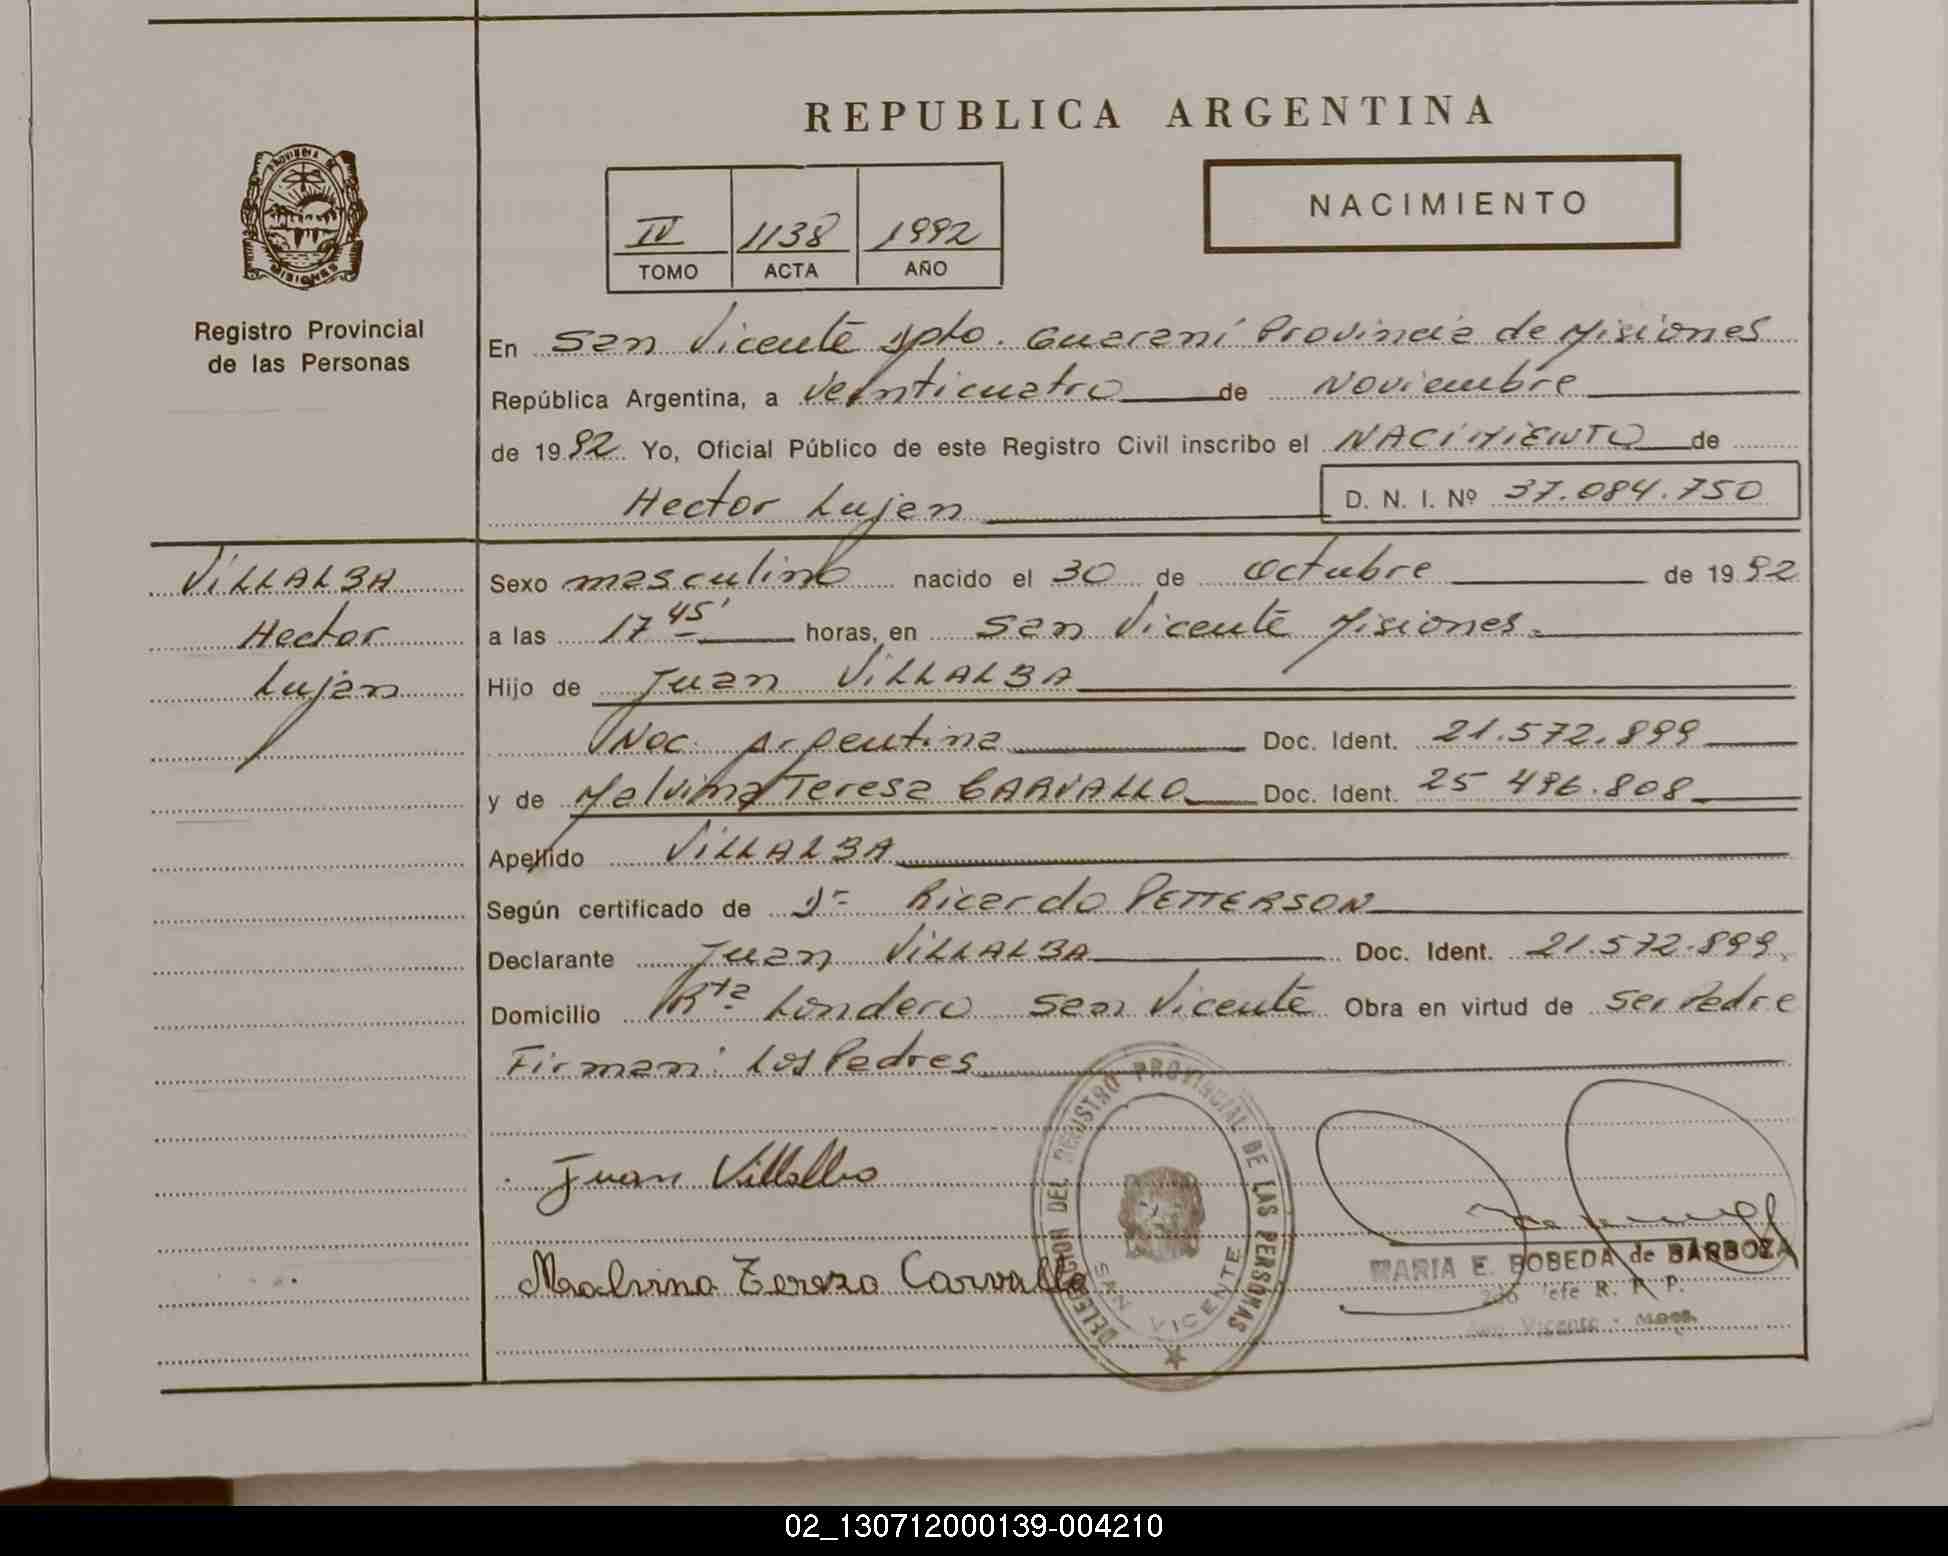 REPUBLICA ARGENTINA
NACIMIENTO
IV 1138 1992
TOMO ACTA AÑO
PROVINCIA DE
MISIONES
Registro Provincial
de las Personas
En San Vicente Dpto. Guaraní Provincia de Misiones
República Argentina, a Veinticuatro de Noviembre
de 1992 Yo, Oficial Público de este Registro Civil inscribo el NACIMIENTO de
Hector Lujan D. N. I. Nº 37.084.750
VILLALBA
Hector
Lujan
Sexo masculino nacido el 30 de Octubre de 1992
a las 17 45' horas, en San Vicente Misiones.
Hijo de Juan VILLALBA
Nac. Argentina Doc. Ident. 21.572.899
y de Malvina Teresa CARVALLO Doc. Ident. 25 496.808
Apellido VILLALBA
Según certificado de Dr Ricardo PETTERSON
Declarante Juan VILLALBA Doc. Ident. 21.572.899
Domicilio Rta Londero San Vicente Obra en virtud de ser Padre
Firman: Los Padres
Juan Villalba
Malvina Tereza Carvallo
DELEGACION DEL REGISTRO PROVINCIAL DE LAS PERSONAS
SAN VICENTE
MARIA E. BOBEDA de BARBOZA
2do Jefe R. P. P.
San Vicente - Mnes.
02_130712000139-004210